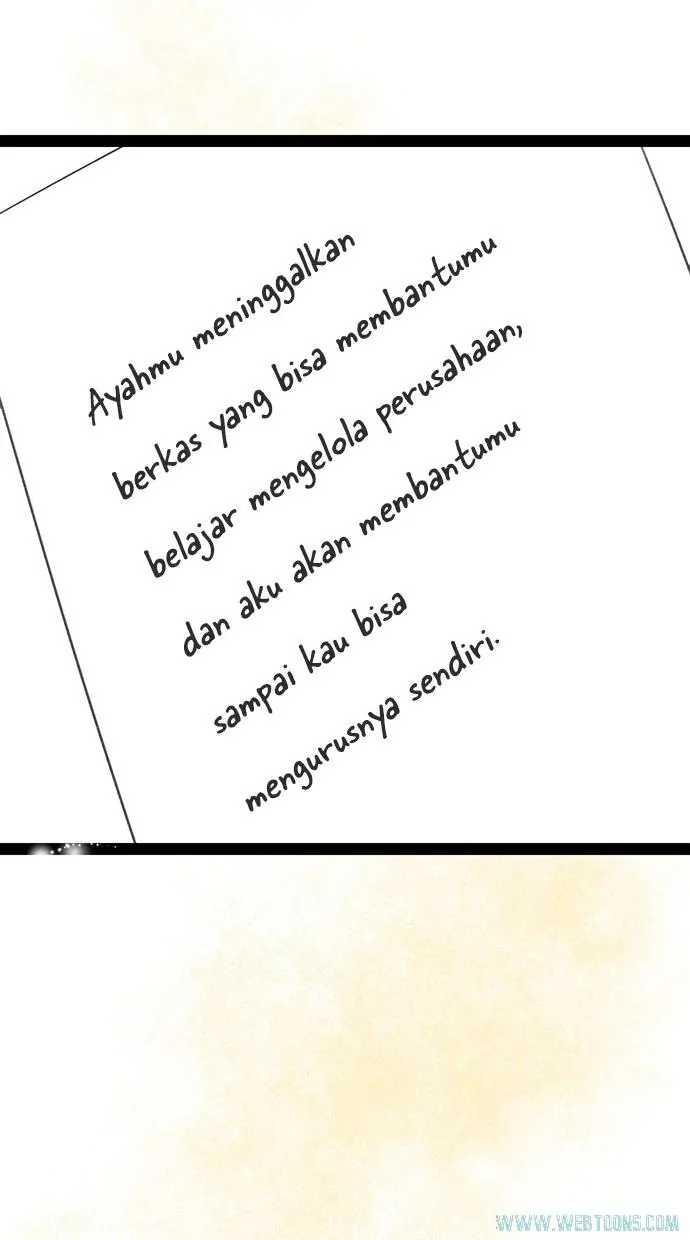 Ayahmu meninggalkan
berkas yang bisa membantumu
belajar mengelola perusahaan,
dan aku akan membantumu
sampai kau bisa
mengurusnya sendiri.
WWW.WEBTOONS.COM